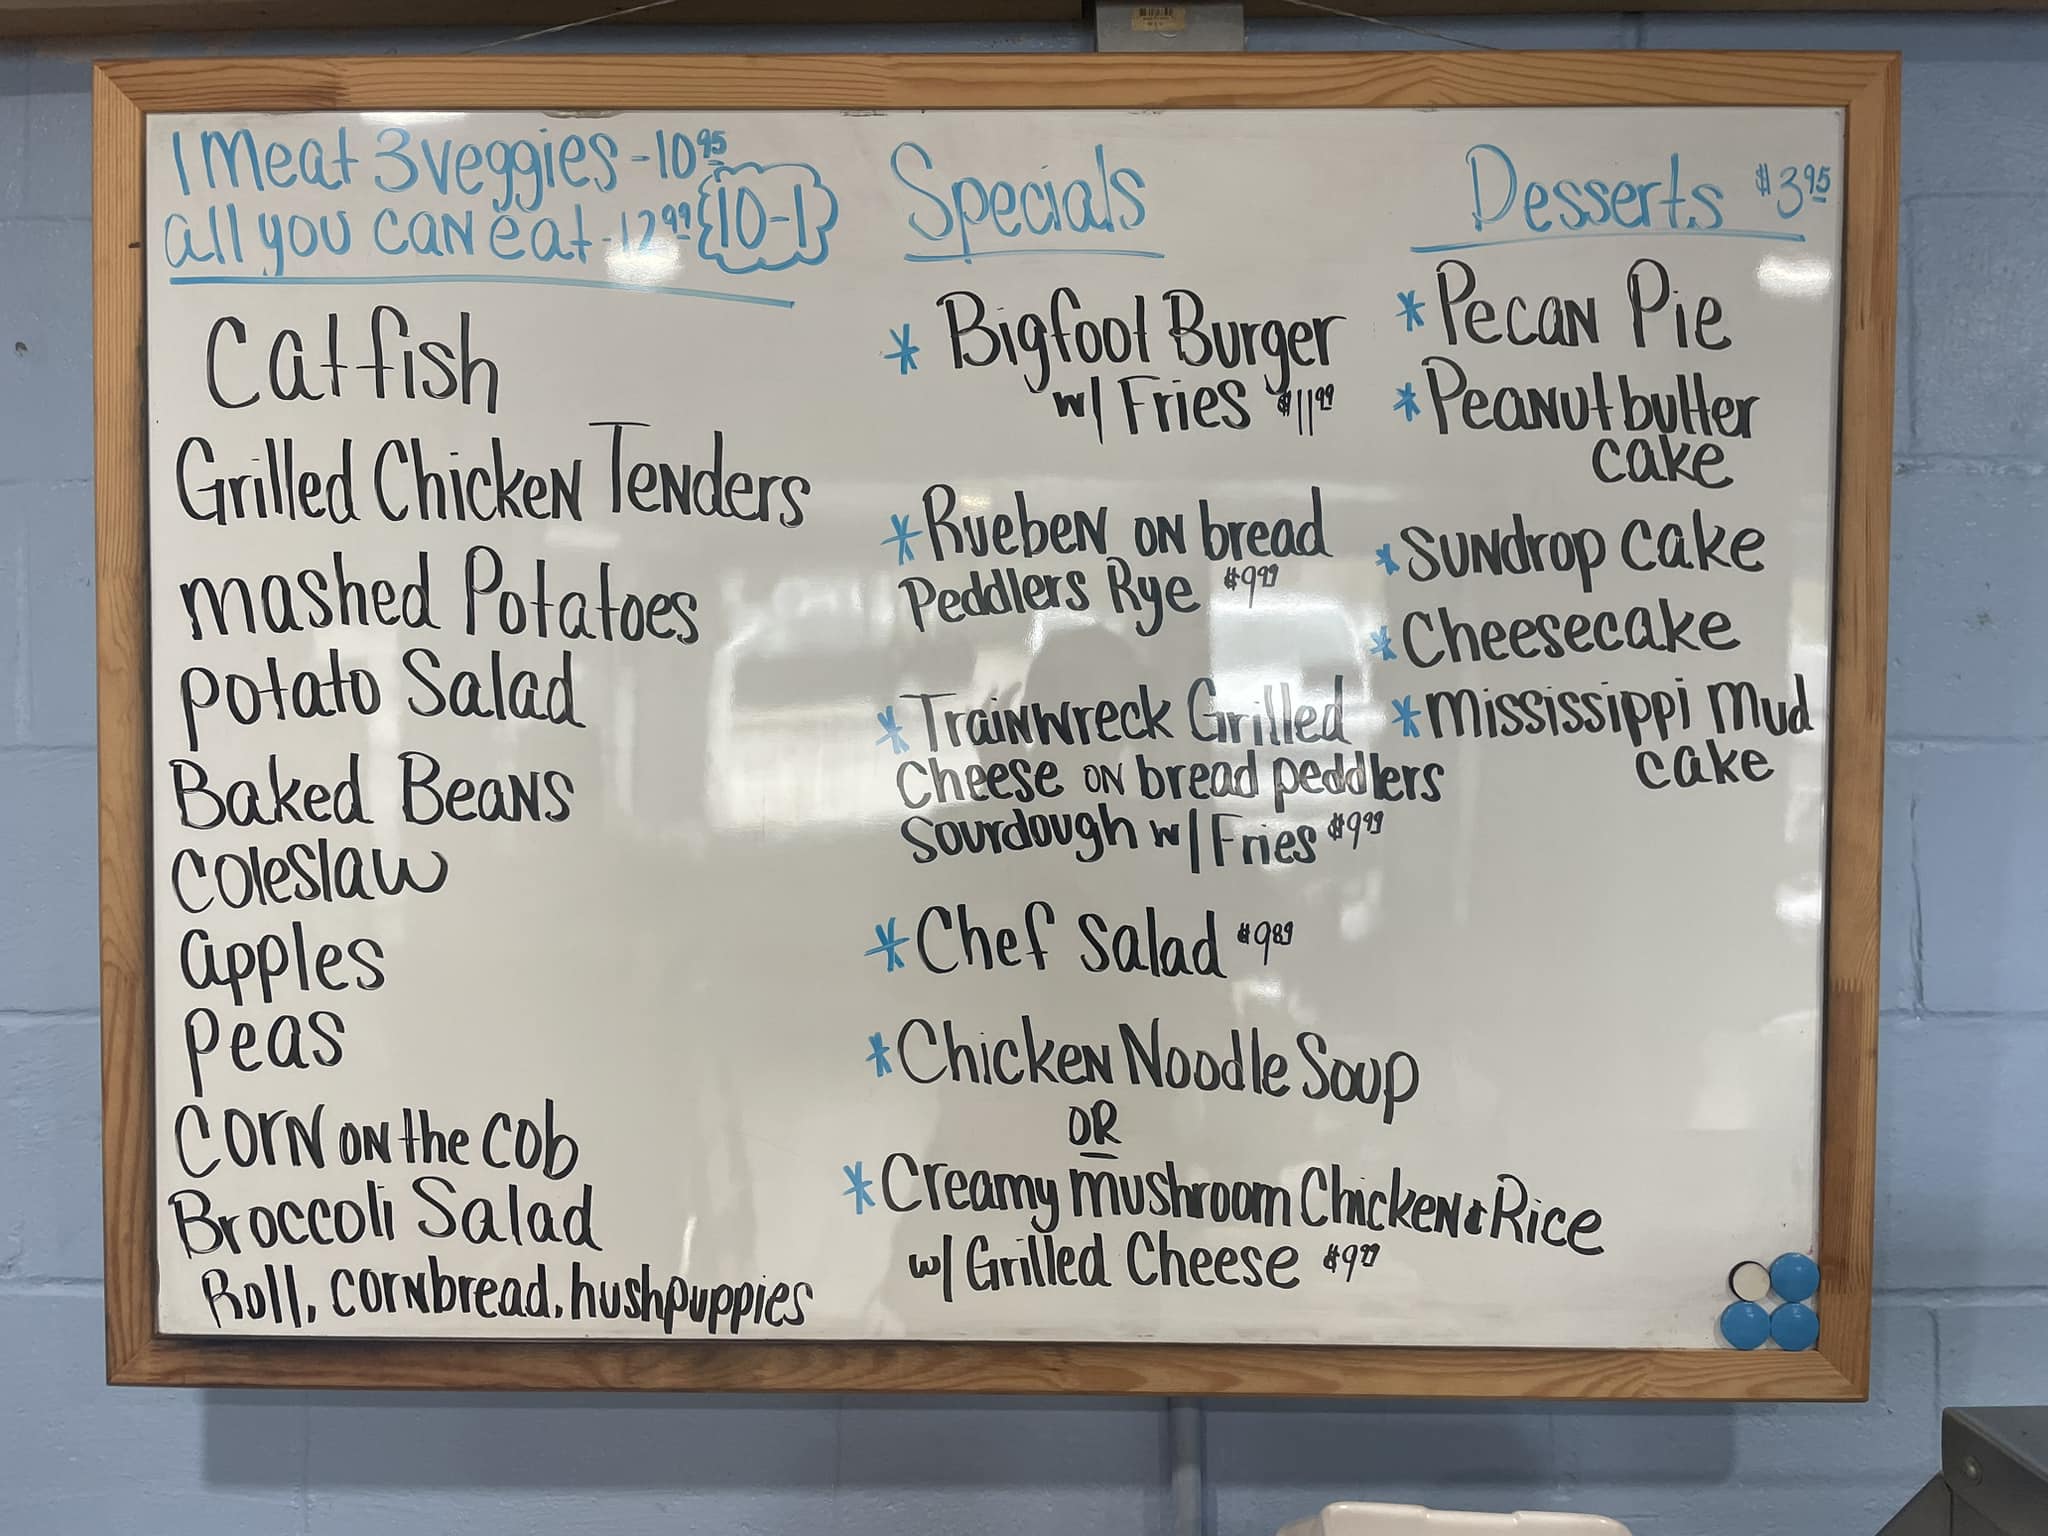 1 Meat 3 veggies - 10 95
all you can eat - 12 99 10-1
Catfish
Grilled Chicken Tenders
mashed Potatoes
potato Salad
Baked Beans
Coleslaw
apples
peas
Corn on the cob
Broccoli Salad
Roll, cornbread, hushpuppies
Specials
* Bigfoot Burger
w/ Fries $11 99
* Rueben on bread
Peddlers Rye $9 99
* Trainwreck Grilled
Cheese on bread peddlers
Sourdough w/ Fries $9 99
* Chef Salad $9 89
* Chicken Noodle Soup
OR
* Creamy mushroom Chicken & Rice
w/ Grilled Cheese $9 99
Desserts $3 95
* Pecan Pie
* Peanutbutter
cake
* Sundrop Cake
* Cheesecake
* Mississippi Mud
cake